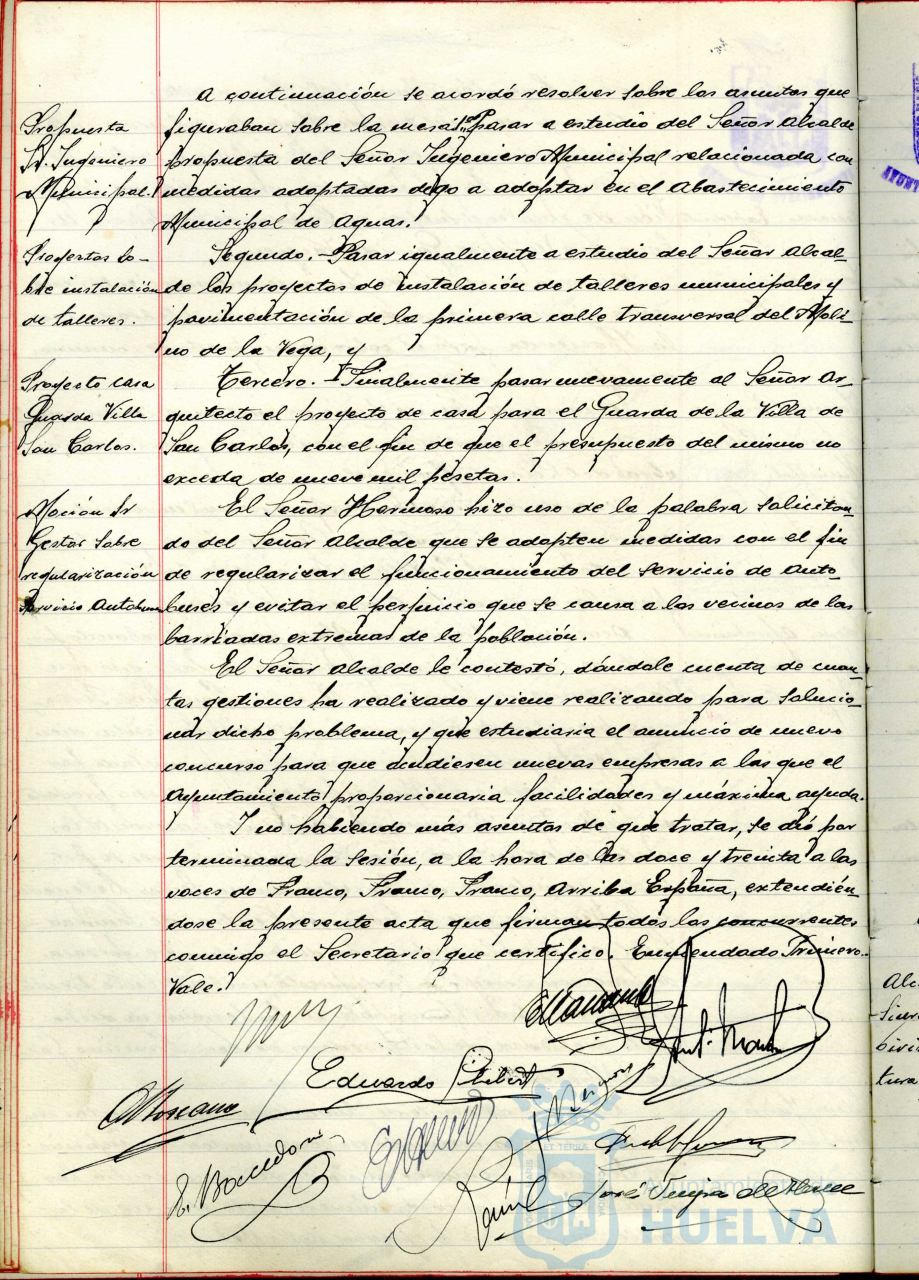 A continuación se acordó resolver sobre los asuntos que
Propuesta
Sr. Ingeniero
Municipal.
figuraban sobre la mesa: 1º Pasar a estudio del Señor Alcalde
propuesta del Señor Ingeniero Municipal relacionada con
medidas adoptadas digo a adoptar en el Abastecimiento
Municipal de Aguas.
Proyectos so-
bre instalación
de talleres.
Segundo.- Pasar igualmente a estudio del Señor Alcal-
de los proyectos de instalación de talleres municipales y
pavimentación de la primera calle transversal del Moli-
no de la Vega, y
Proyecto casa
Guarda Villa
San Carlos.
Tercero. Y finalmente pasar nuevamente al Señor Ar-
quitecto el proyecto de casa para el Guarda de la Villa de
San Carlos, con el fin de que el presupuesto del mismo no
exceda de nueve mil pesetas.
Moción Sr
Gestor sobre
regularización
servicio Autobuses
El Señor Hermoso hizo uso de la palabra solicitan-
do del Señor Alcalde que se adopten medidas con el fin
de regularizar el funcionamiento del servicio de Auto-
buses y evitar el perjuicio que se causa a los vecinos de las
barriadas extremas de la población.
El Señor Alcalde le contestó, dándole cuenta de cuan-
tas gestiones ha realizado y viene realizando para solucio-
nar dicho problema, y que estudiaria el anuncio de nuevo
concurso para que acudiesen nuevas empresas a las que el
Ayuntamiento proporcionaria facilidades y máxima ayuda.
Y no habiendo más asuntos de que tratar, se dió por
terminada la sesión, a la hora de las doce y treinta a las
voces de Franco, Franco, Franco, Arriba España, extendién-
dose la presente acta que firman todos los concurrentes
conmigo el Secretario que certifico. Enmendado Primero.-
Vale.
Eduardo
José
Ayuntamiento de
HUELVA